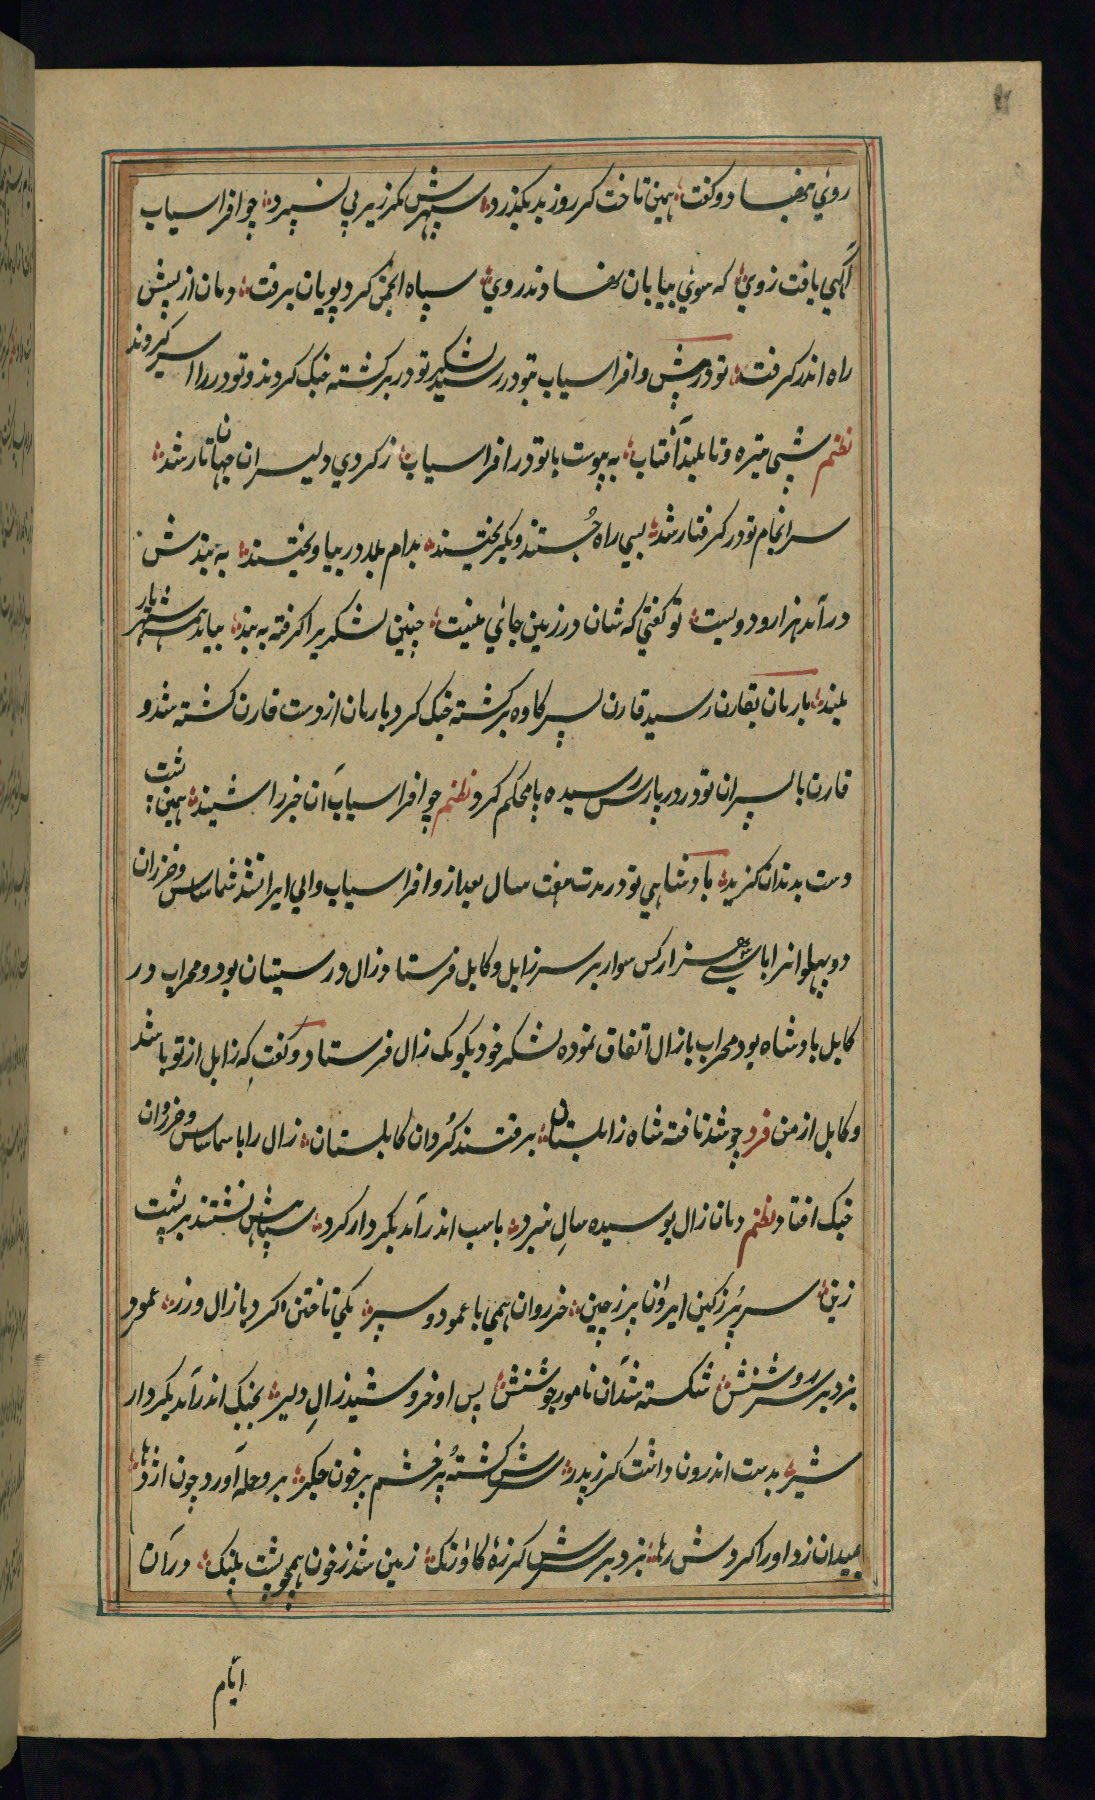 روی نهاد و گفت همین تاخت کز روز بد بگذرد سپهرش مگر زیر پی نسپرد چو افراسیاب
آگهی یافت زوی که سوی بیابان نهادند روی سپاه انجمن کرد و پویان برفت دمان از پیش
راه اندر گرفت نودر پیش و افراسیاب بنودر رسید لشکر نودر برگشته جنک کردند و نودر را اسیر کردند
نظم شبی تیره و تا بلند آفتاب به پیوست با نودر افراسیاب ز گردی دلیران جهان تار شد
سرانجام نودر گرفتار شد بسی راه جستند و بگریختند بدام بلا در بیاویختند به بندش
در آمد هزار و دویست تو گفتی که شان در زمین جای نیست چنین لشکریرا گرفته به بند بیامد همه شهریار
بلند بارمان بقارن رسید قارن پسر کاوه برگشته جنک کرد بارمان از دست قارن کشته شد و
قارن با پسران نودر در پارس رسیده پا محکم کرد نظم چو افراسیاب آن خبر را شنید همین پشت
دست بدندان گزید پادشاهی نودر مدت هفت سال بعد از و افراسیاب والی ایران شد شماساس و خزروان
دو پهلوانرا با سی هزار کس سوار بر سر زابل و کابل فرستاد و زال در سیستان بود و مهراب در
کابل پادشاه بود مهراب با زال اتفاق نموده لشکر خود بکومک زال فرستاد و گفت که زابل از تو باشد
و کابل از من فرد چو شد تافته شاه زابلستان برفتند گردان کابلستان زال را با سماساس و خزروان
جنک افتاد نظم دمان زال پوسیده ساز نبرد باسب اندر آمد بکردار کرد سپاهش نشستند بر پشت
زین سر پر ز کین ابروان پر ز چین خزروان همی با عمود و سپر یکی تاختن کرد با زال و زر عمود
بزد بر سر روشنش شکسته شد آن نامور جوشنش پس او خروشید زال دلیر بجنک اندر آمد بکردار
شیر بدست اندرون داشت گرز پدر سرش گشته پر خشم پر خون جگر برو حمله آورد چون اژدها
بمیدان زد او را کردش رها بزد بر سرش گرزهٔ گاو رنک زمین شد ز خون همچو پشت پلنک در آن
ایام